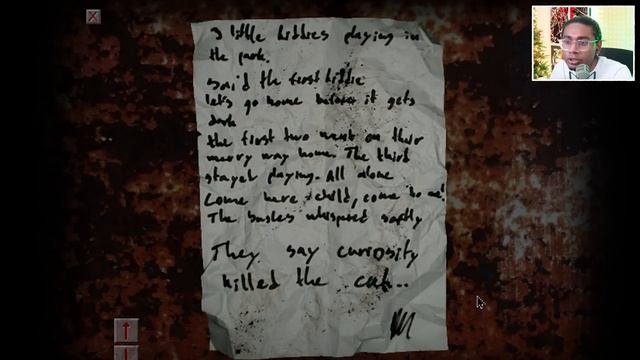 3 little kiddies playing in
the park.
said the first kiddie
let's go home before it gets
dark
the first two went on their
merry way home. The third
stayed playing. All alone
Come here child, come to me!
The bushes whispered softly
They say curiosity
killed the cat..